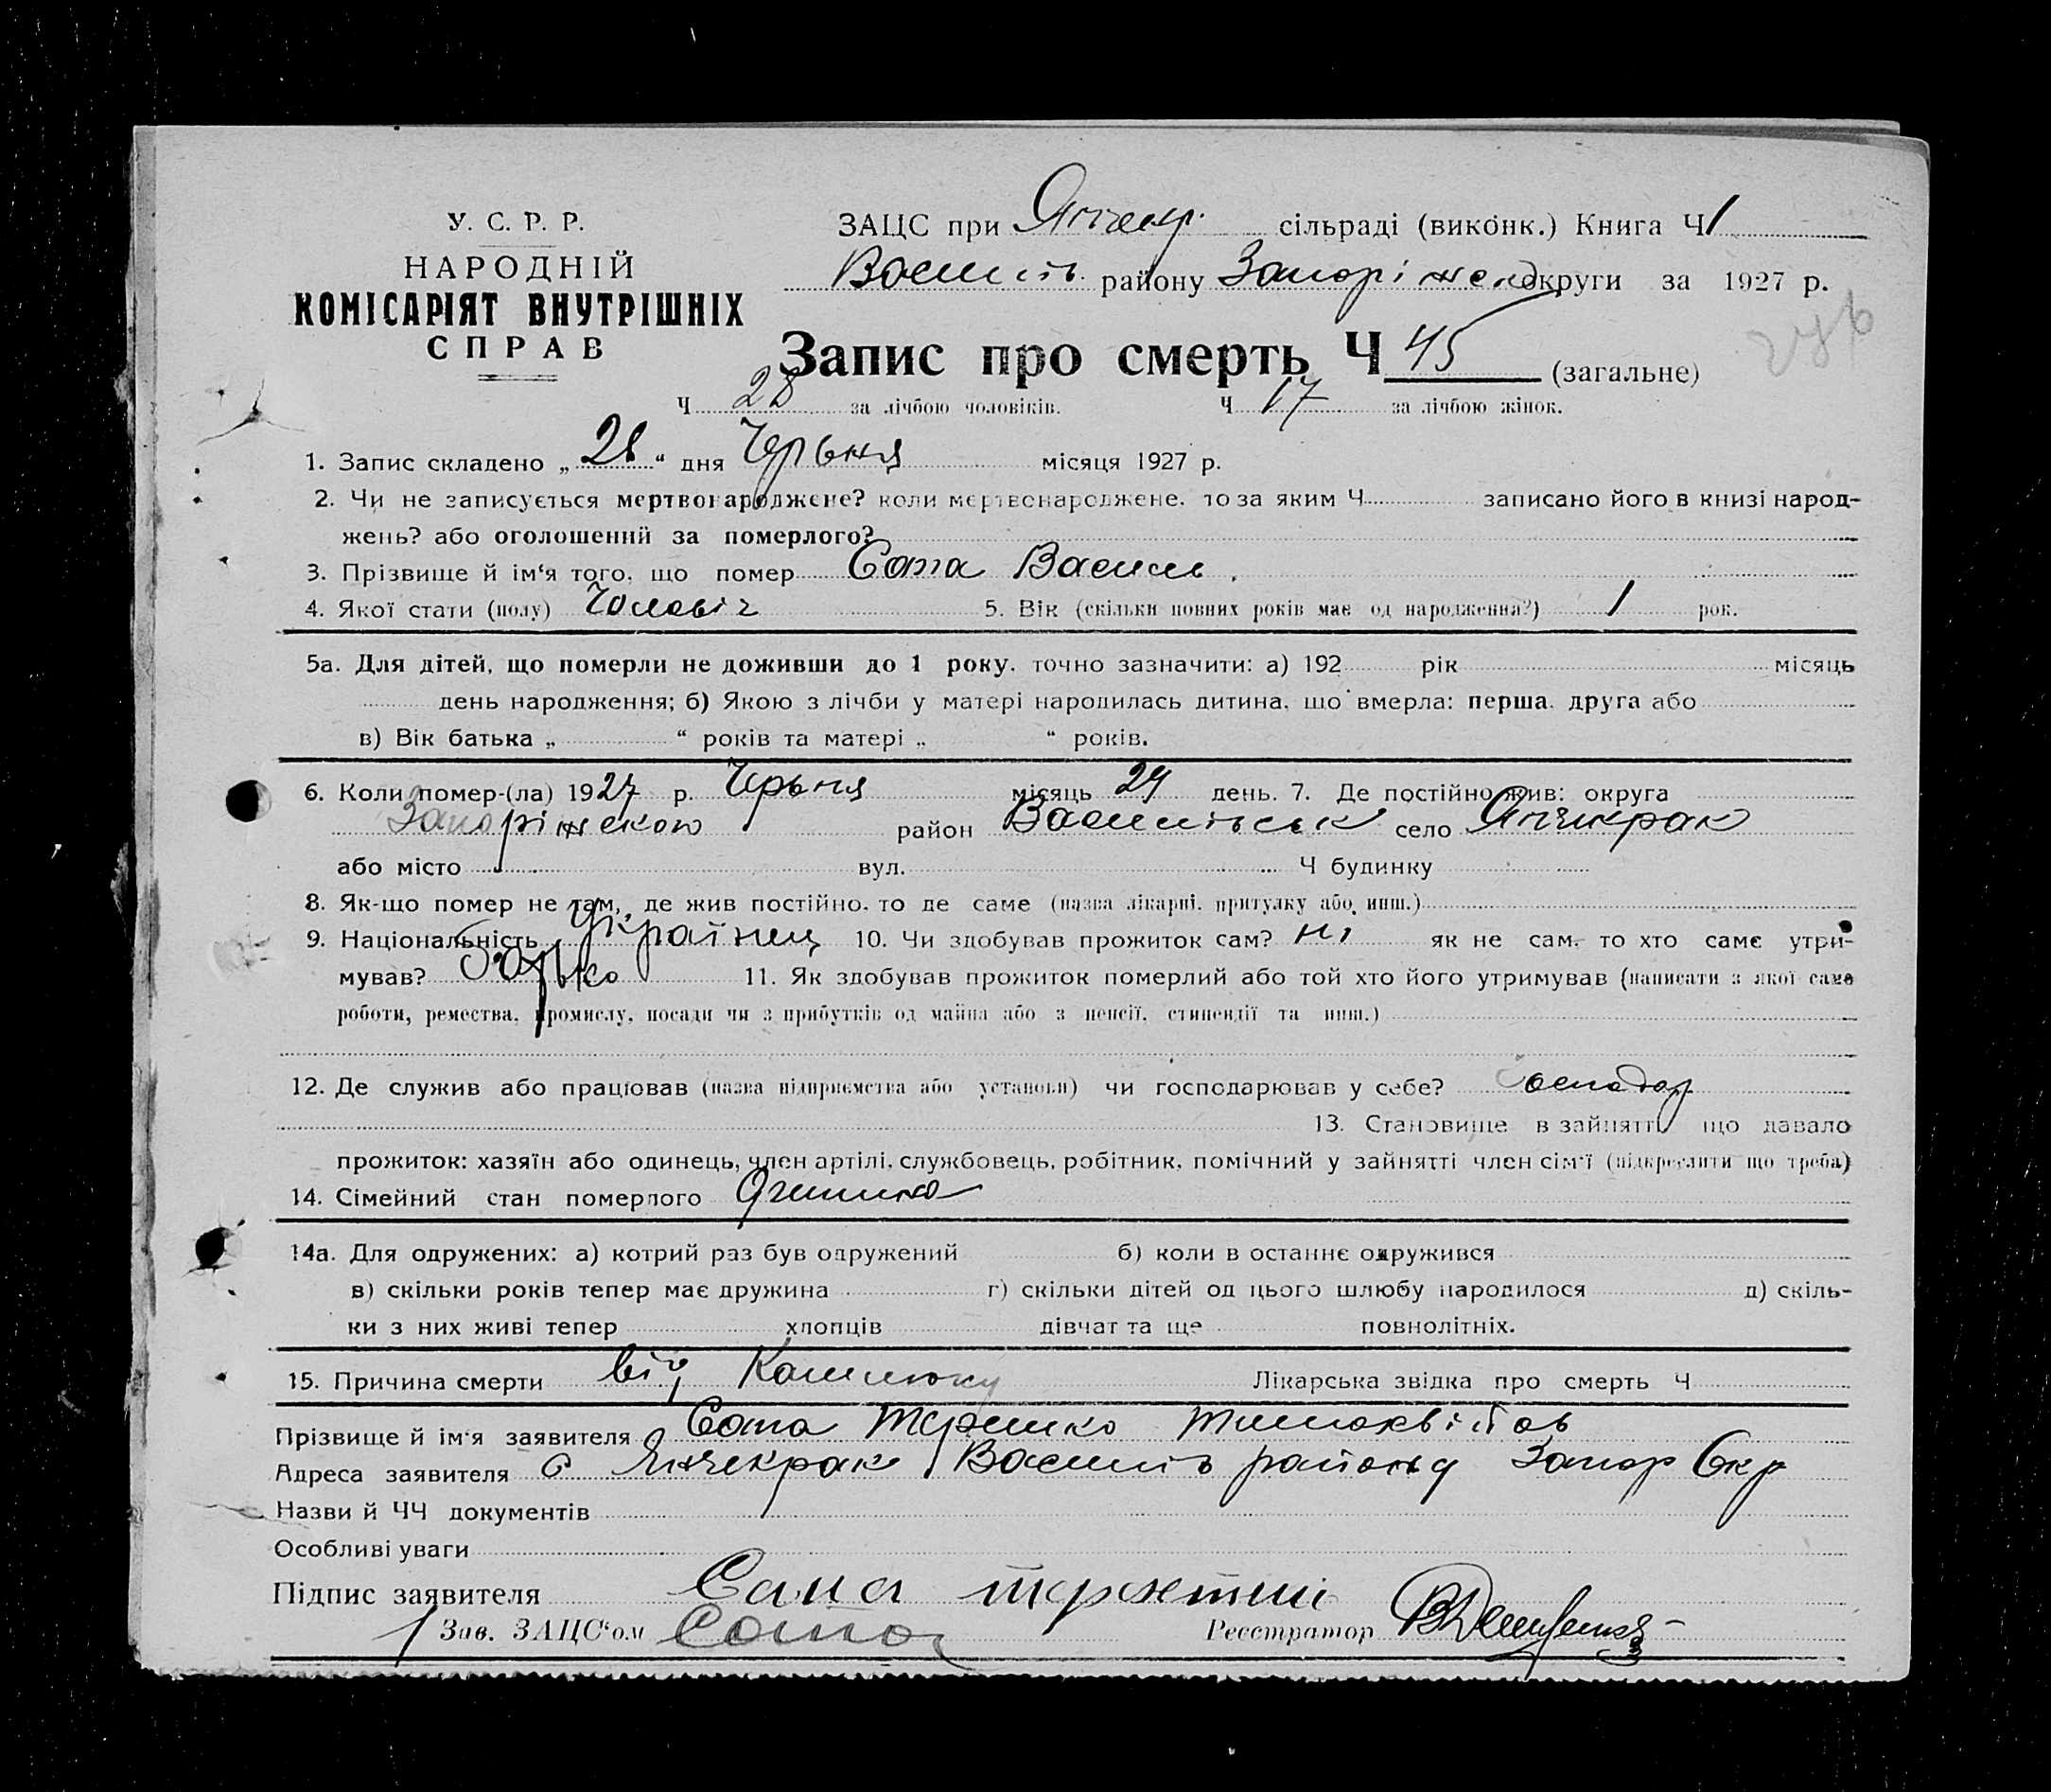 У. С. Р. Р.
НАРОДНІЙ
КОМІСАРІЯТ ВНУТРІШНІХ
СПРАВ
ЗАЦС при Янчекр. сільраді (виконк.) Книга Ч 1
Василь. району Запоріжск округи за 1927 р.
Запис про смерть Ч 45 (загальне)
Ч 28 за лічбою чоловіків. Ч 17 за лічбою жінок.
1. Запис складено „28“ дня Червня місяця 1927 р.
2. Чи не записується мертвонароджене? коли мертвонароджене, то за яким Ч записано його в книзі народ-
жень? або оголошений за померлого?
3. Прізвище й ім‘я того, що помер Сапа Василь.
4. Якої стати (полу) Чоловіч 5. Вік (скільки повних років має од народження?) 1 рок.
5а. Для дітей, що померли не доживши до 1 року, точно зазначити: а) 192 рік місяць
день народження; б) Якою з лічби у матері народилась дитина, що вмерла: перша, друга або
в) Вік батька „ “ років та матері „ “ років.
6. Коли помер-(ла) 1927 р. Червня місяць день. 7. Де постійно жив: округа
Запоріжскою район Васильськ село Янчекрак
або місто вул. Ч будинку
8. Як-що помер не там, де жив постійно, то де саме (назва лікарні, притулку або инш.)
9. Національність Українец 10. Чи здобував прожиток сам? Ні як не сам, то хто саме утри-
мував? Батько 11. Як здобував прожиток померлий або той хто його утримував (написати з якої саме
роботи, ремества, промислу, посади чи з прибутків од майна або з пенсії, стипендії та инш.)
12. Де служив або працював (назва підприємства або установи) чи господарював у себе? Господар
13. Становище в зайнятті що давало
прожиток: хазяїн або одинець, член артілі, службовець, робітник, помічний у зайнятті член сім‘ї (підкреслити що треба)
14. Сімейний стан померлого
14а. Для одружених: а) котрий раз був одружений б) коли в останнє одружився
в) скільки років тепер має дружина г) скільки дітей од цього шлюбу народилося д) скіль-
ки з них живі тепер хлопців дівчат та ще повнолітніх.
15. Причина смерти від Кашлюку Лікарська звідка про смерть Ч
Прізвище й ім‘я заявителя Сапа Терешко
Адреса заявителя с Янчекрак Василів району Запор Окр
Назви й ЧЧ документів
Особливі уваги
Підпис заявителя Сапа
Зав. ЗАЦС‘ом Реєстратор